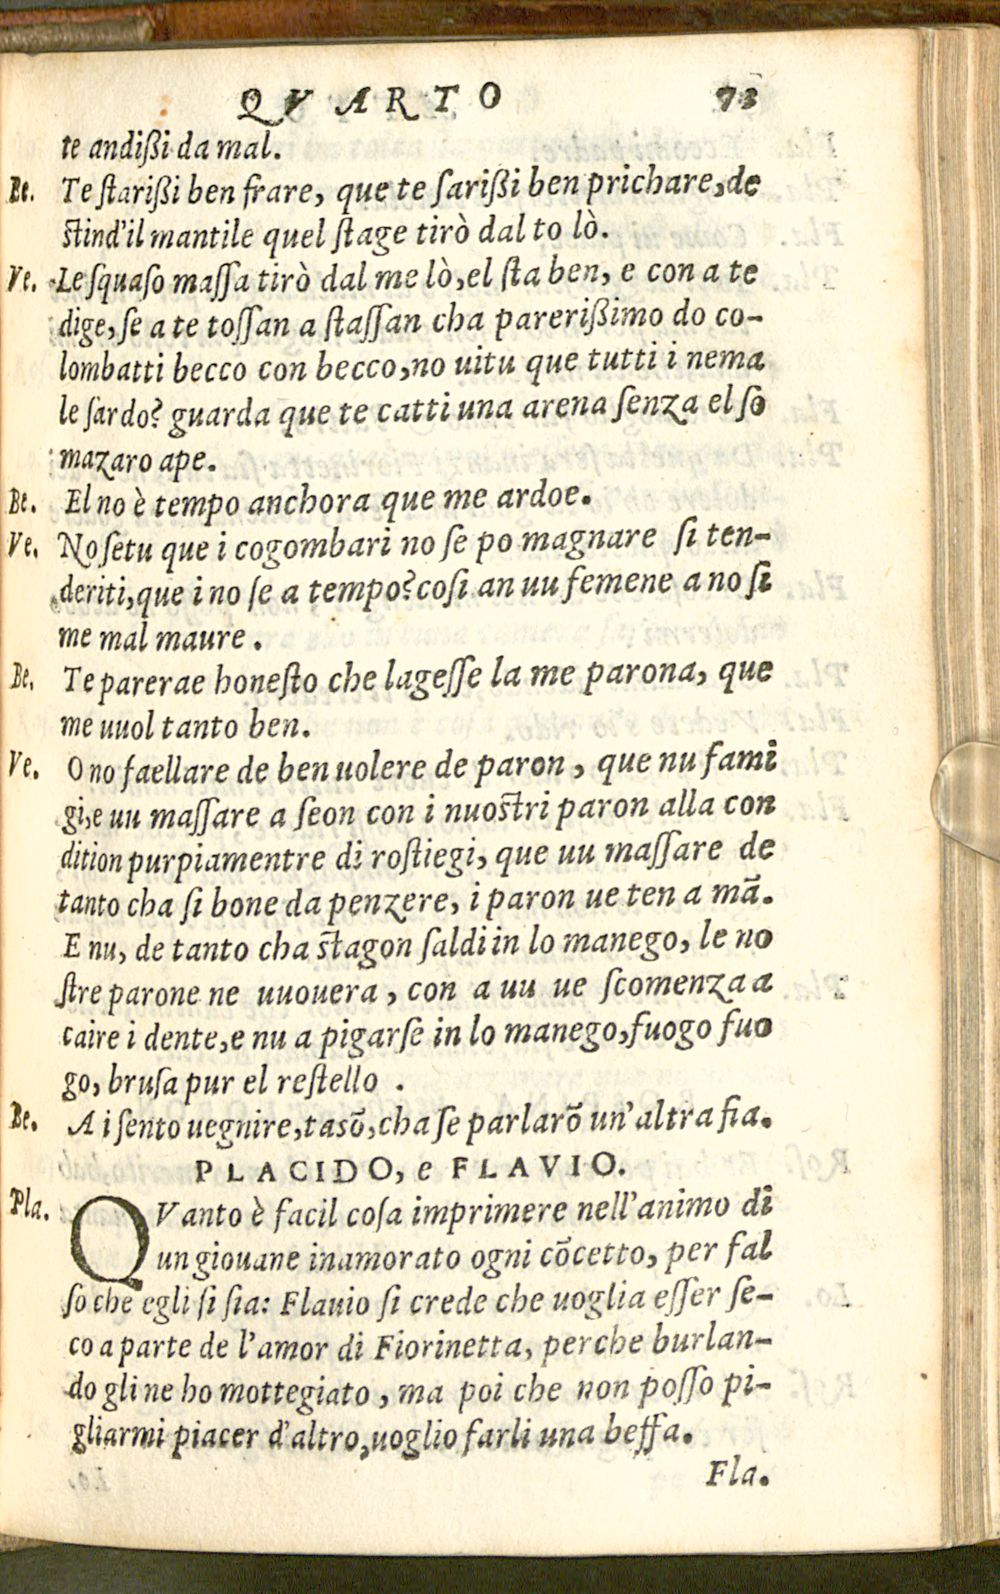 QVARTO 73
te andißi da mal.
Be. Te ſtarißi ben frare, que te ſarißi ben prichare, de
ſtind'il mantile quel ſtage tirò dal to lò.
Ve. Le ſquaſo maſſa tirò dal me lò, el ſta ben, e con a te
dige, ſe a te toſſan a ſtaſſan cha parerißimo do co-
lombatti becco con becco, no uitu que tutti i nema
le ſar do? guarda que te catti una arena ſenza el ſo
mazaro ape.
Be. El no è tempo anchora que me ardoe.
Ve. No ſetu que i cogombari no ſe po magnare ſi ten-
deriti, que i no ſe a tempo? coſi an uu femene a no ſi
me mal maure.
Be. Te parerae honeſto che lageſſe la me parona, que
me uuol tanto ben.
Ve. O no faellare de ben uolere de paron, que nu fami
gi, e uu maſſare a ſeon con i nuoſtri paron alla con
dition purpiamentre di roſtiegi, que uu maſſare de
tanto cha ſi bone da penzere, i paron ue ten a mā.
E nu, de tanto cha ſtagon ſaldi in lo manego, le no
ſtre parone ne uuouera, con a uu ue ſcomenza a
caire i dente, e nu a pigarſe in lo manego, fuogo fuo
go, bruſa pur el reſtello.
Be. A i ſento uegnire, tasō, cha ſe parlarō un'altra fia.
PLACIDO, e FLAVIO.
Pla. QVanto è facil coſa imprimere nell'animo di
un giouane inamorato ogni cōcetto, per fal
ſo che egli ſi ſia: Flauio ſi crede che uoglia eſſer ſe-
co a parte de l'amor di Fiorinetta, perche burlan-
do gli ne ho mottegiato, ma poi che non poſſo pi-
gliarmi piacer d'altro, uoglio farli una beffa.
Fla.